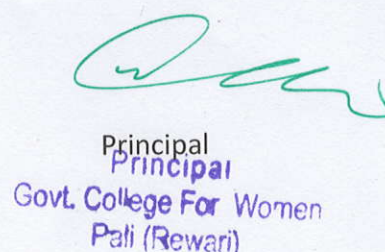 Principal
Principal
Govt. College For Women
Pali (Rewari)